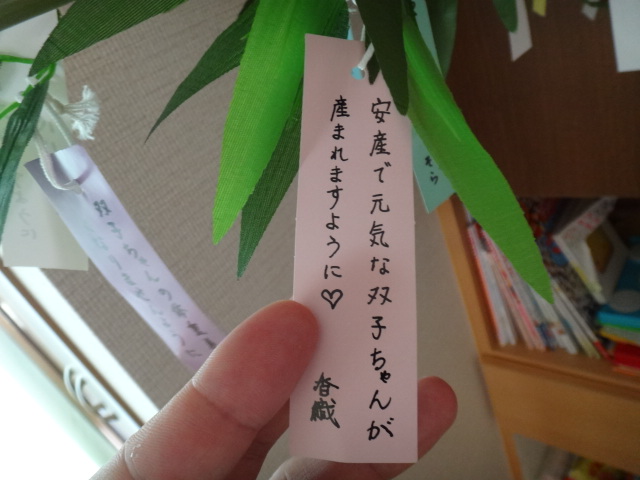 安産で元気な双子ちゃんが
産まれますように♡
香織
双子ちゃんの
そら